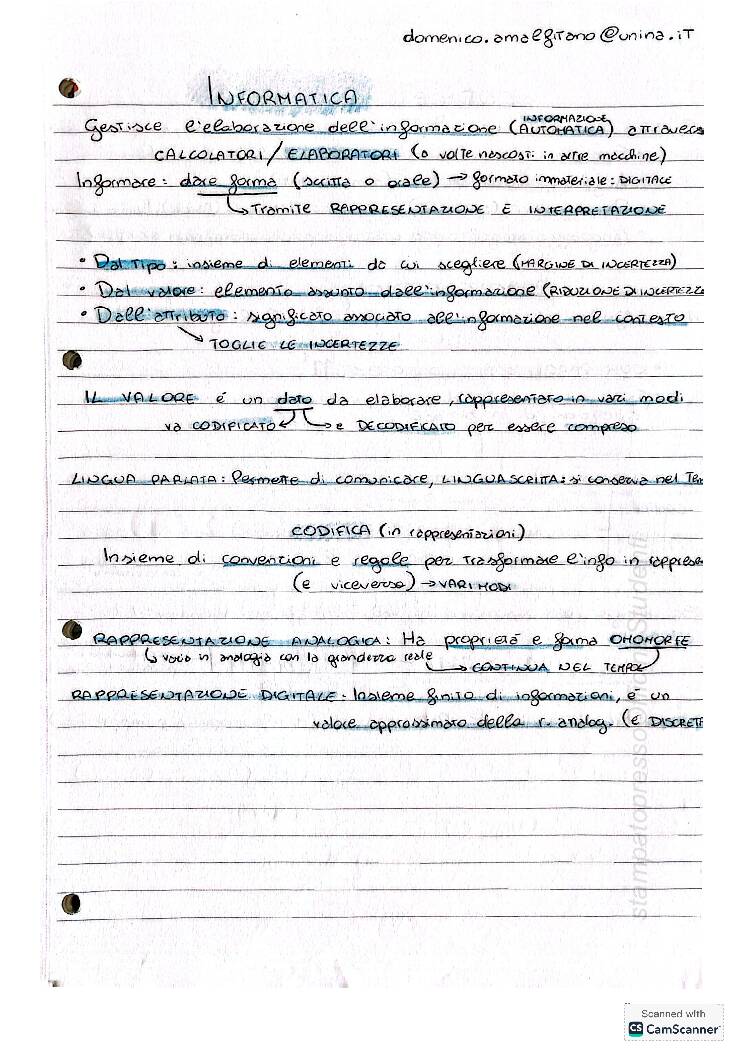 domenico.amalfitano@unina.it
INFORMATICA
Gestisce l'elaborazione dell'informazione (INFORMAZIONE AUTOMATICA) attravers
CALCOLATORI/ELABORATORI (a volte nascosti in altre macchine)
Informare: dare forma (scritta o orale) → formato immateriale: DIGITALE
↳ Tramite RAPPRESENTAZIONE E INTERPRETAZIONE
• Dal Tipo: insieme di elementi da cui scegliere (MARGINE DI INCERTEZZA)
• Dal valore: elemento assunto dall'informazione (RIDUZIONE DI INCERTEZZ
• Dall'attributo: significato associato all'informazione nel contesto
↘ TOGLIE LE INCERTEZZE
IL VALORE é un dato da elaborare, rappresentato in vari modi
va CODIFICATO ↲ ↳ e DECODIFICATO per essere compreso
LINGUA PARLATA: Permette di comunicare, LINGUA SCRITTA: si conserva nel Tem
CODIFICA (in rappresentazioni)
Insieme di convenzioni e regole per trasformare l'info in rapprese
(e viceversa) → VARI MODI
RAPPRESENTAZIONE ANALOGICA: Ha proprietá e forma OMOMORFE
↳ varia in analogia con la grandezza reale ↳ CONTINUA NEL TEMPO
RAPPRESENTAZIONE DIGITALE: Insieme finito di informazioni, é un
valore approssimato della r. analog. (é DISCRETE
stampatopressoStudenti
Scanned with
CS CamScanner